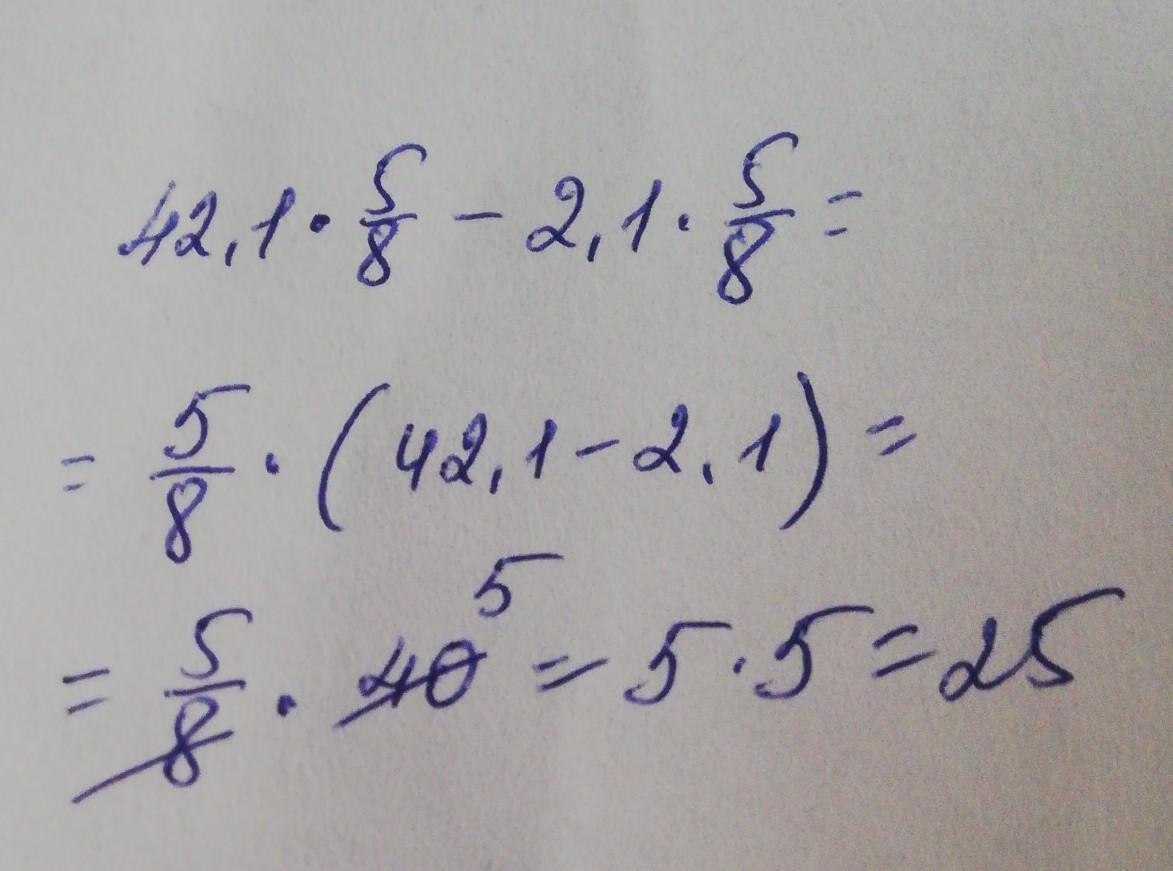 42,1 · 5/8 - 2,1 · 5/8 =
= 5/8 · (42,1 - 2,1) =
= 5/8 · 40 5 = 5 · 5 = 25